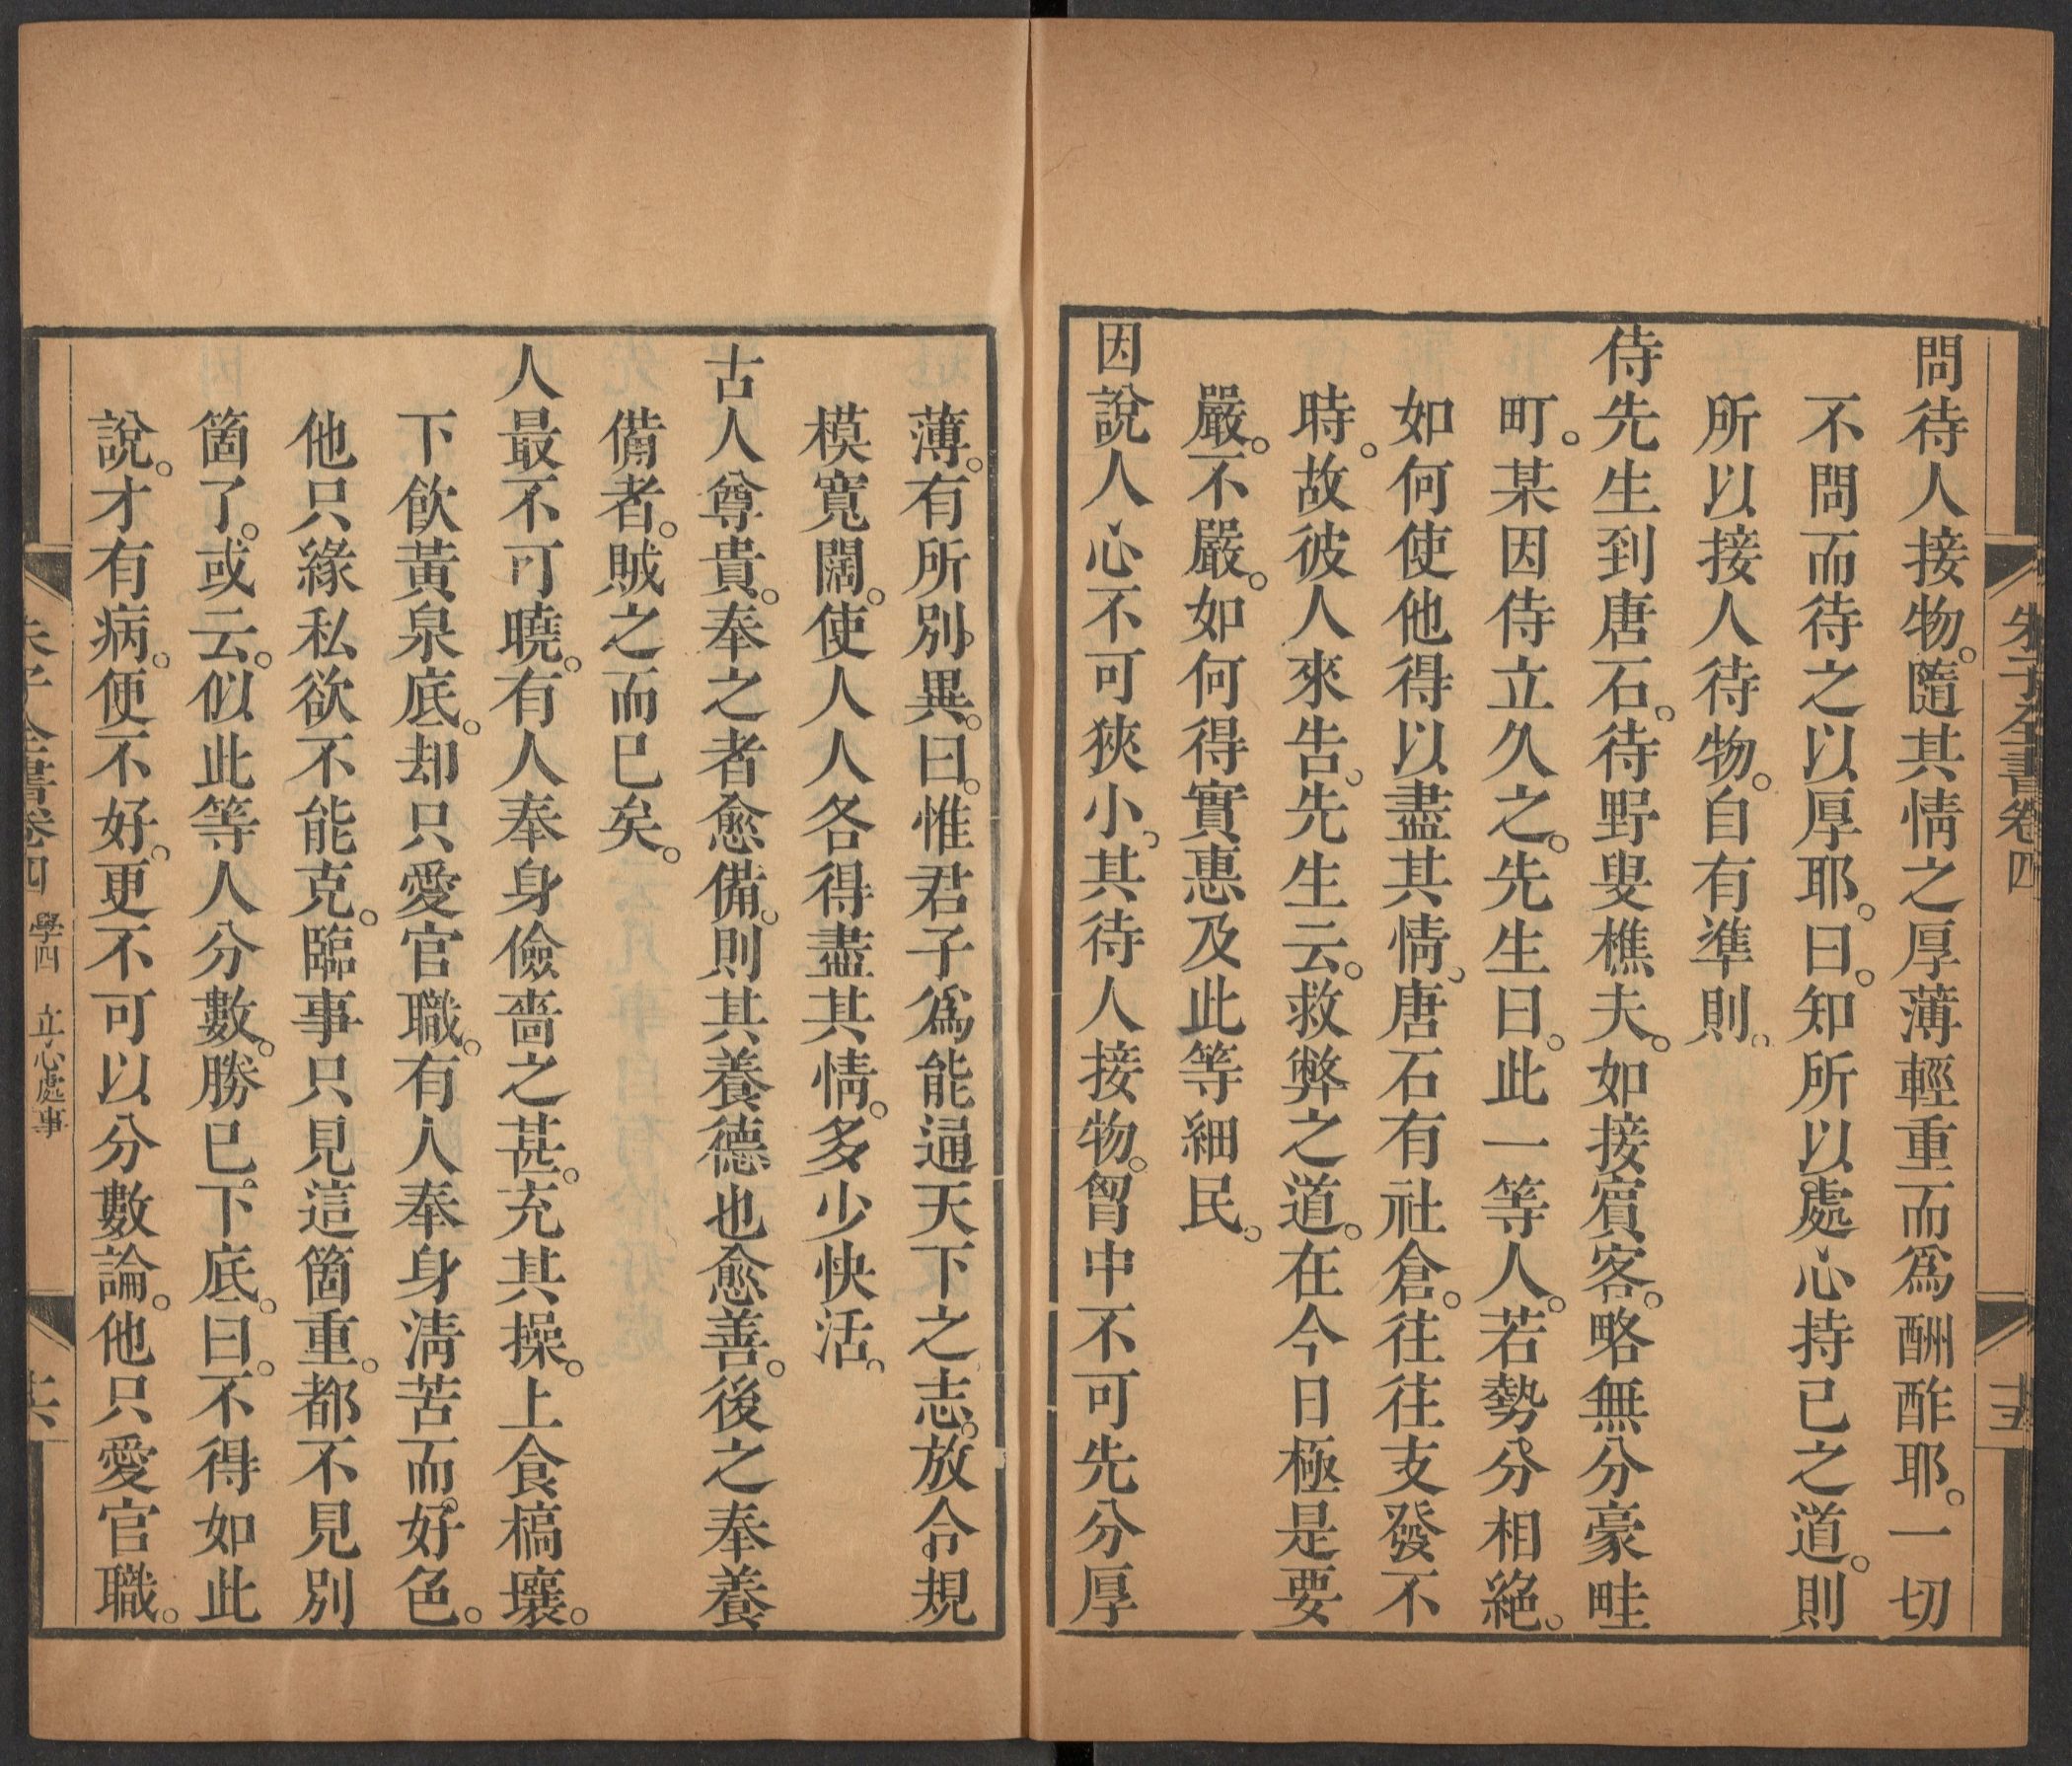 朱子全書卷四
十五
問待人接物。隨其情之厚薄輕重而爲酬酢耶。一切
不問而待之以厚耶。曰。知所以處心持已之道。則
所以接人待物。自有準則。
侍先生到唐石。待野叟樵夫。如接賓客。略無分豪畦
町。某因侍立久之。先生曰。此一等人。若勢分相絶。
如何使他得以盡其情。唐石有社倉。往往支發不
時。故彼人來告。先生云。救弊之道。在今日極是要
嚴。不嚴。如何得實惠及此等細民。
因說人心不可狹小。其待人接物。胷中不可先分厚
薄。有所別異。曰。惟君子爲能通天下之志。放令規
模寬闊。使人人各得盡其情。多少快活。
古人尊貴。奉之者愈備。則其養德也愈善。後之奉養
備者。賊之而已矣。
人最不可曉。有人奉身儉嗇之甚。充其操。上食槁壤。
下飲黃泉底。却只愛官職。有人奉身淸苦而好色。
他只緣私欲不能克。臨事只見這箇重。都不見別
箇了。或云。似此等人分數。勝已下底。曰。不得如此
說。才有病。便不好。更不可以分數論。他只愛官職。
朱子全書卷四 學四 立心處事
十六